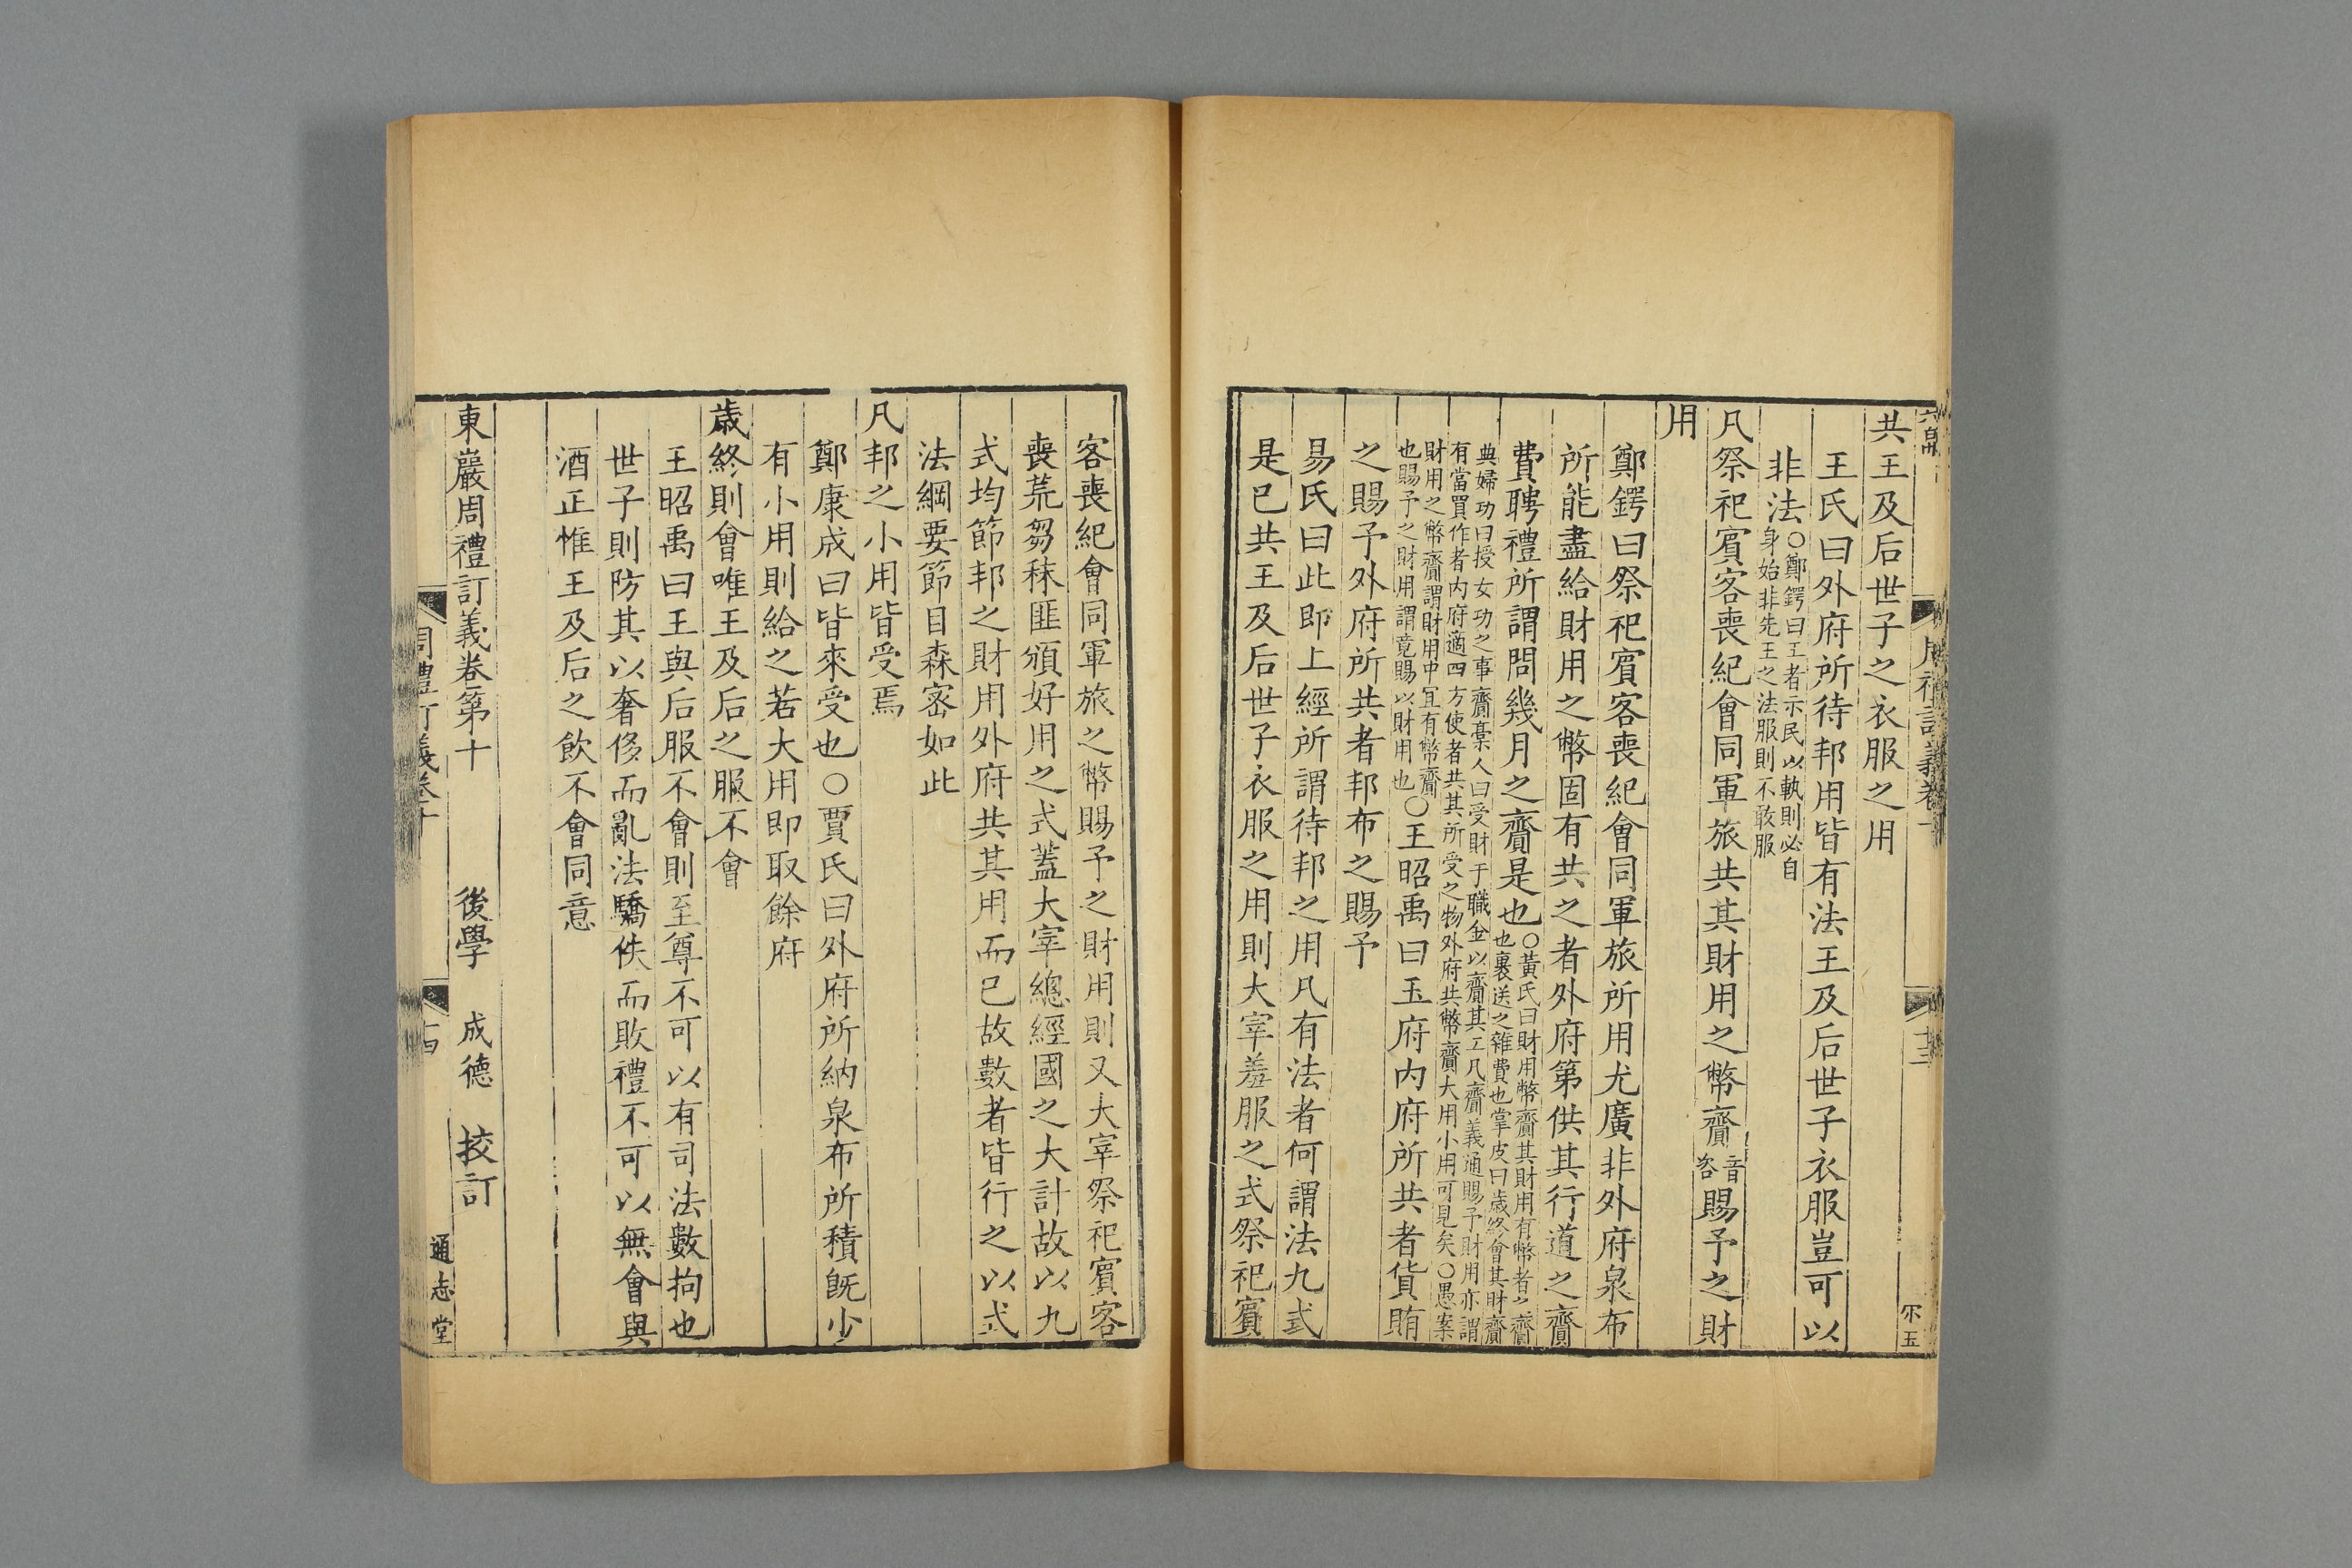 共王及后世子之衣服之用
王氏曰外府所待邦用皆有法王及后世子衣服豈可以
非法〇鄭鍔曰王者示民以執則必自身始非先王之法服則不敢服
凡祭祀賓客喪紀會同軍旅共其財用之幣齎音咨賜予之財
用
鄭鍔曰祭祀賓客喪紀會同軍旅所用尤廣非外府泉布
所能盡給財用之幣固有共之者外府第供其行道之齎
費聘禮所謂問幾月之齎是也〇黃氏曰財用幣齎其財用有幣者之齎也裹送之雜費也掌皮曰歲終會其財齎
典婦功曰授女功之事齎稾人曰受財于職金以齎其工凡齎義通賜予財用亦謂有當買作者內府適四方使者共其所受之物外府共幣齎大用小用可見矣〇愚案
財用之幣齎謂財用中宜有幣齎也賜予之財用謂竟賜以財用也〇王昭禹曰玉府內府所共者貨賄
之賜予外府所共者邦布之賜予
易氏曰此即上經所謂待邦之用凡有法者何謂法九式
是已共王及后世子衣服之用則大宰羞服之式祭祀賓
客喪紀會同軍旅之幣賜予之財用則又大宰祭祀賓客
喪荒芻秣匪頒好用之式蓋大宰總經國之大計故以九
式均節邦之財用外府共其用而已故數者皆行之以式
法綱要節目森密如此
凡邦之小用皆受焉
鄭康成曰皆來受也〇賈氏曰外府所納泉布所積既少
有小用則給之若大用即取餘府
歲終則會唯王及后之服不會
王昭禹曰王與后服不會則至尊不可以有司法數拘也
世子則防其以奢侈而亂法驕佚而敗禮不可以無會與
酒正惟王及后之飲不會同意
東巖周禮訂義卷第十
後學 成德 挍訂
通志堂